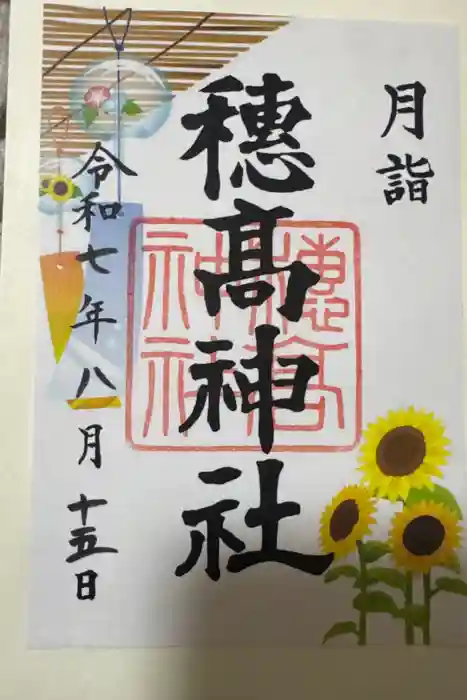 月詣
穂髙神社
令和七年八月十五日
穂高神社